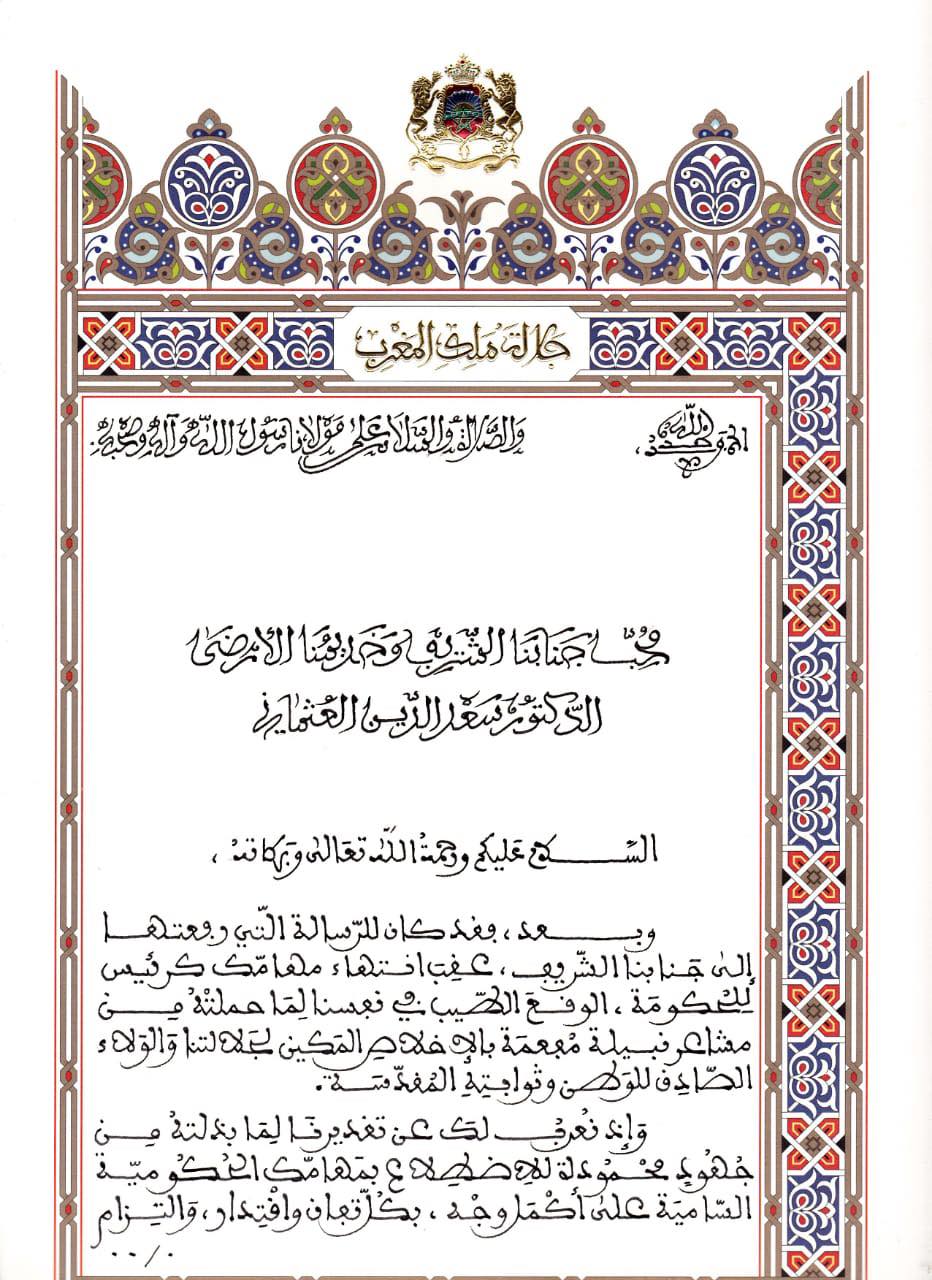 جلالة ملك المغرب
الحمد لله وحده،
والصلاة والسلام على مولانا رسول الله وآله وصحبه
محب جنابنا الشريف وخديمنا الأرضى
الدكتور سعد الدين العثماني
السلام عليكم ورحمة الله تعالى وبركاته،
وبعد، فقد كان للرسالة التي رفعتها
إلى جنابنا الشريف، عقب انتهاء مهامك كرئيس
للحكومة، الوقع الطيب في نفسنا لما حملته من
مشاعر نبيلة مفعمة بالإخلاص المكين لجلالتنا والولاء
الصادق للوطن وثوابته المقدسة.
وإذ نعرب لك عن تقديرنا لما بذلته من
جهود محمودة للاضطلاع بمهامك الحكومية
السامية على أكمل وجه، بكل تفان واقتدار، والتزام
../.